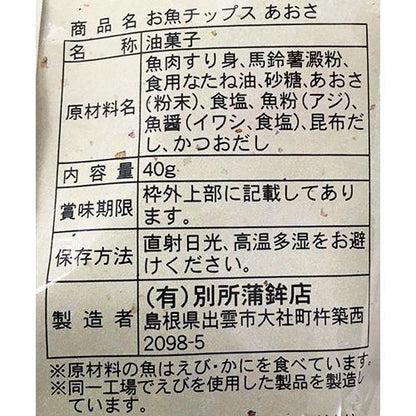 商品名 お魚チップス あおさ
名称 油菓子
原材料名 魚肉すり身、馬鈴薯澱粉、
食用なたね油、砂糖、あおさ
(粉末)、食塩、魚粉(アジ)、
魚醤(イワシ、食塩)、昆布だ
し、かつおだし
内容量 40g
賞味期限 枠外上部に記載してあり
ます。
保存方法 直射日光、高温多湿をお避
けください。
製造者 (有)別所蒲鉾店
島根県出雲市大社町杵築西
2098-5
※原材料の魚はえび・かにを食べています。
※同一工場でえびを使用した製品を製造し
ています。